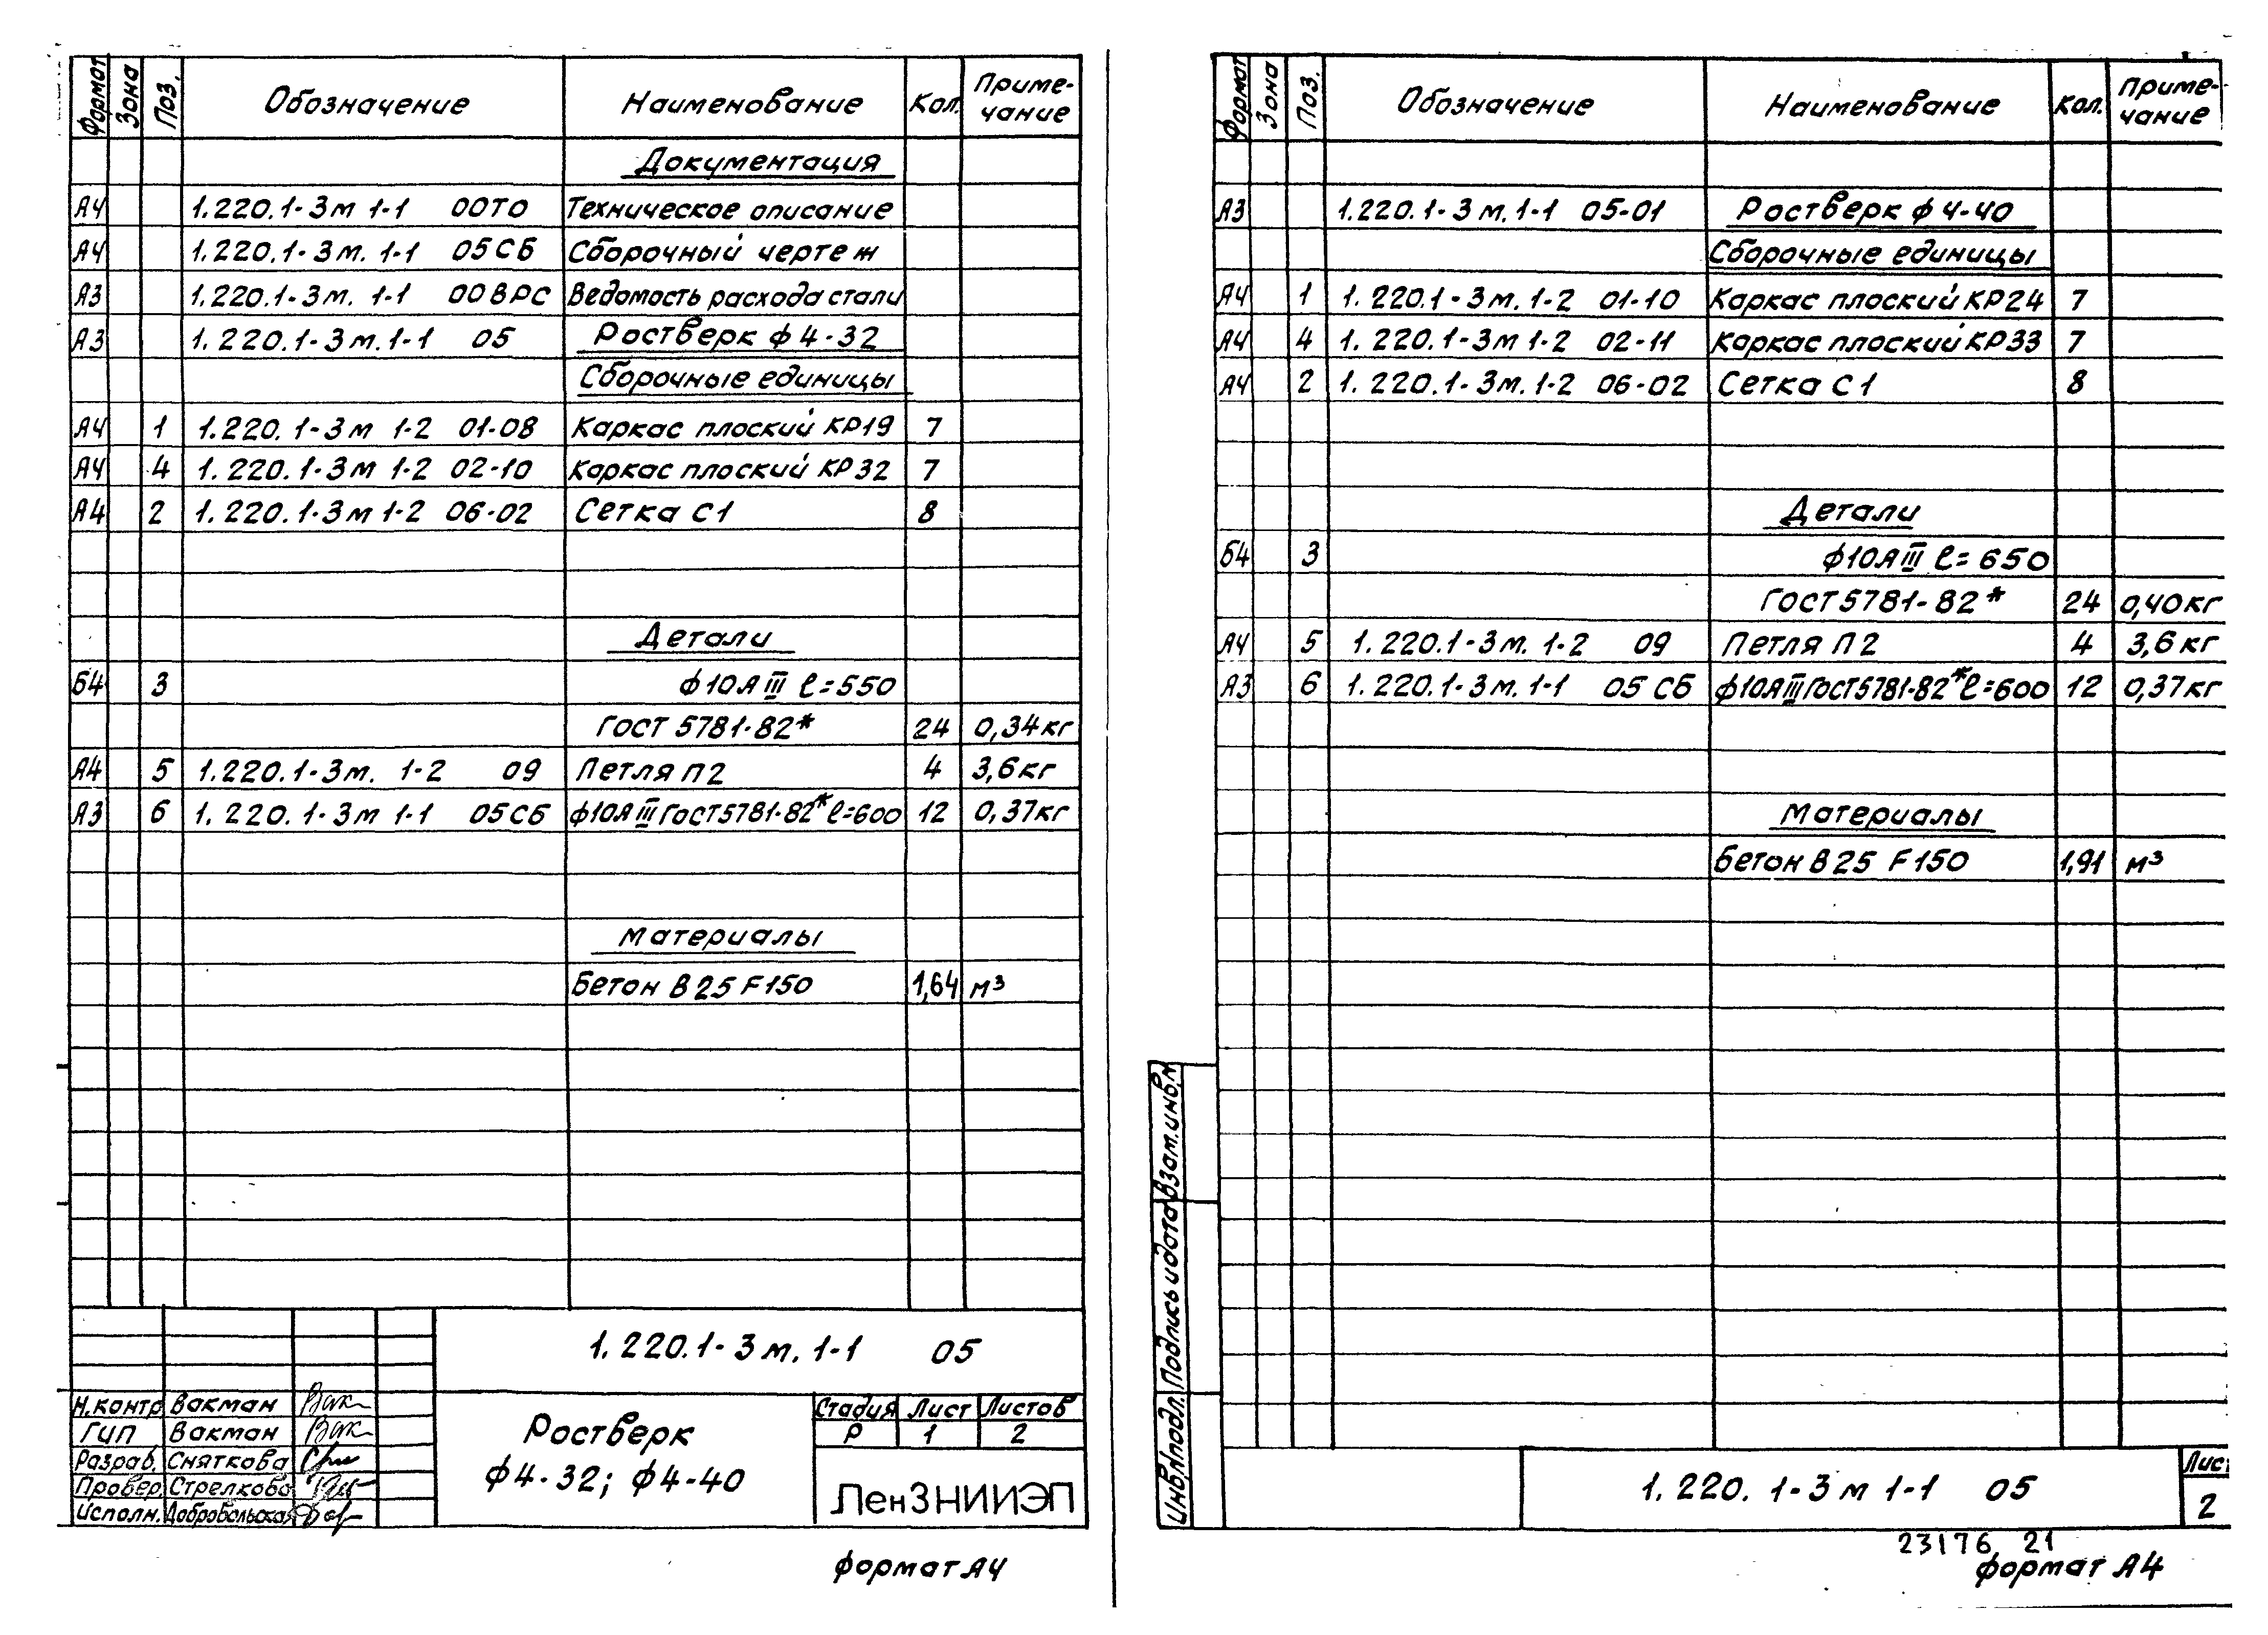 Формат Зона Поз. Обозначение Наименование Кол. Приме-
чание
Документация
А4 1.220.1-3м 1-1 00ТО Техническое описание
А4 1.220.1-3м. 1-1 05СБ Сборочный чертеж
А3 1.220.1-3м. 1-1 00ВРС Ведомость расхода стали
А3 1.220.1-3м.1-1 05 Ростверк ф4-32
Сборочные единицы
А4 1 1.220.1-3м 1-2 01-08 Каркас плоский КР19 7
А4 4 1.220.1-3м 1-2 02-10 Каркас плоский КР32 7
А4 2 1.220.1-3м 1-2 06-02 Сетка С1 8
Детали
Б4 3 ф10АIII ℓ=550
ГОСТ 5781-82* 24 0,34кг
А4 5 1.220.1-3м. 1-2 09 Петля П2 4 3,6кг
А3 6 1.220.1-3м 1-1 05СБ ф10АIII ГОСТ5781-82* ℓ=600 12 0,37кг
Материалы
Бетон В25 F150 1,64 м³
1.220.1-3м.1-1 05
Н.контр. Вакман
ГИП Вакман
Разраб. Сняткова
Провер. Стрелкова
Исполн. Добровольская
Ростверк
ф4-32; ф4-40
Стадия Лист Листов
Р 1 2
ЛенЗНИИЭП
формат А4
Формат Зона Поз. Обозначение Наименование Кол. Приме-
чание
А3 1.220.1-3м.1-1 05-01 Ростверк ф4-40
Сборочные единицы
А4 1 1.220.1-3м.1-2 01-10 Каркас плоский КР24 7
А4 4 1.220.1-3м 1-2 02-11 Каркас плоский КР33 7
А4 2 1.220.1-3м.1-2 06-02 Сетка С1 8
Детали
Б4 3 ф10АIII ℓ=650
ГОСТ5781-82* 24 0,40кг
А4 5 1.220.1-3м. 1-2 09 Петля П2 4 3,6кг
А3 6 1.220.1-3м.1-1 05СБ ф10АIII ГОСТ5781-82* ℓ=600 12 0,37кг
Материалы
Бетон В25 F150 1,91 м³
Взам.инв.№
Подпись и дата
Инв.№подл.
1.220.1-3м 1-1 05
Лис
2
23176 21
формат А4